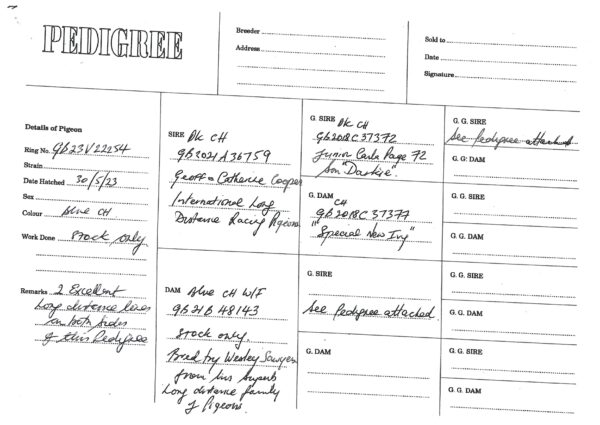 PEDIGREE
Breeder
Address
Sold to
Date
Signature
Details of Pigeon
Ring No. GB23V22254
Strain
Date Hatched 30/5/23
Sex
Colour Blue CH
Work Done Stock only
Remarks 2 Excellent
Long distance lines
on both sides
of this Pedigree
SIRE Dk CH
GB2021A36759
Geoff & Catherine Cooper
International Long
Distance Racing Pigeons
DAM Blue CH W/F
GB21B48143
Stock only.
Bred by Wesley Sawyer
from his superb
Long distance family
of Pigeons.
G. SIRE Dk CH
GB2018C37372
Junior Carla Page 72
Son "Darkie".
G. DAM CH
GB2018C37377
"Special New Ivy"
G. SIRE
See Pedigree attached.
G. DAM
G. G. SIRE
See Pedigree attached
G. G. DAM
G. G. SIRE
G. G. DAM
G. G. SIRE
G. G. DAM
G. G. SIRE
G. G. DAM